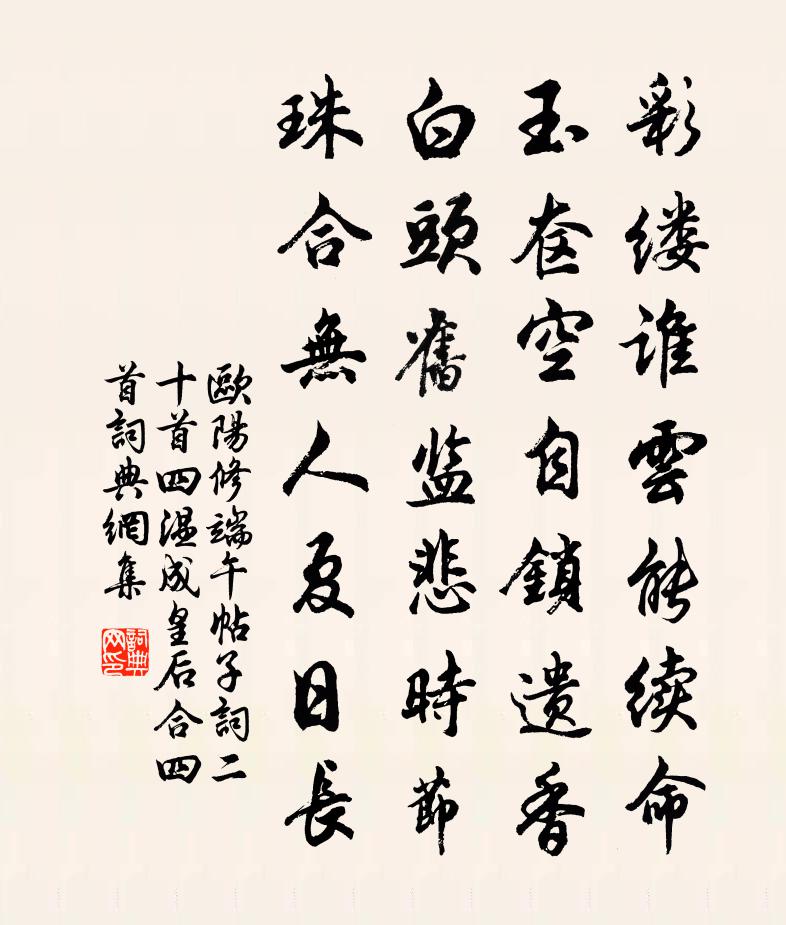 彩缕誰雲能续命
玉奁空自鎖遗香
白頭舊监悲時節
珠合無人夏日長
歐陽修端午帖子詞二
十首四温成皇后合四
首詞典網集
詞典网印